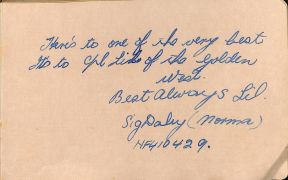 Here's to one of the very best
to Cpl of the Golden
West.
Best Always Lil.
Sig Daley (Norma)
HF410429.